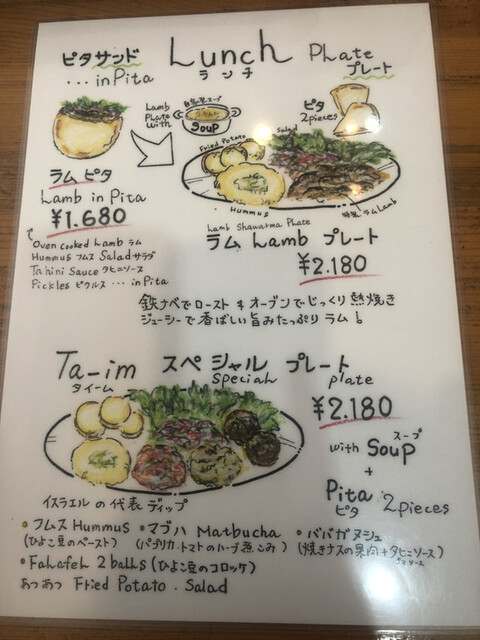 ピタサンド
... in Pita
Lunch
ランチ
Plate
プレート
Lamb
Plate
with
Soup
ピタ
2pieces
Fried Potato
Salad
Hummus
Lamb
ラム ピタ
Lamb in Pita
¥1.680
Oven cooked Lamb ラム
Hummus フムス Salad サラダ
Tahini Sauce タヒニソース
Pickles ピクルス ... in Pita
Lamb Shawarma Plate
ラム Lamb プレート
¥2.180
鉄ナベでロースト & オーブンでじっくり熱焼き
ジューシーで香ばしい旨みたっぷり ラム!
Ta-im スペシャル プレート
タイーム special plate
¥2.180
with Soup スープ
+
Pita 2pieces
ピタ
イスラエルの代表ディップ
・フムス Hummus ・マブハ Matbucha ・ババガヌシュ
(ひよこ豆のペースト) (パプリカ・トマトのハーブ煮こみ) (焼きナスの果肉+タヒニソース)
・Falafel 2 balls (ひよこ豆のコロッケ)
あつあつ Fried Potato . Salad